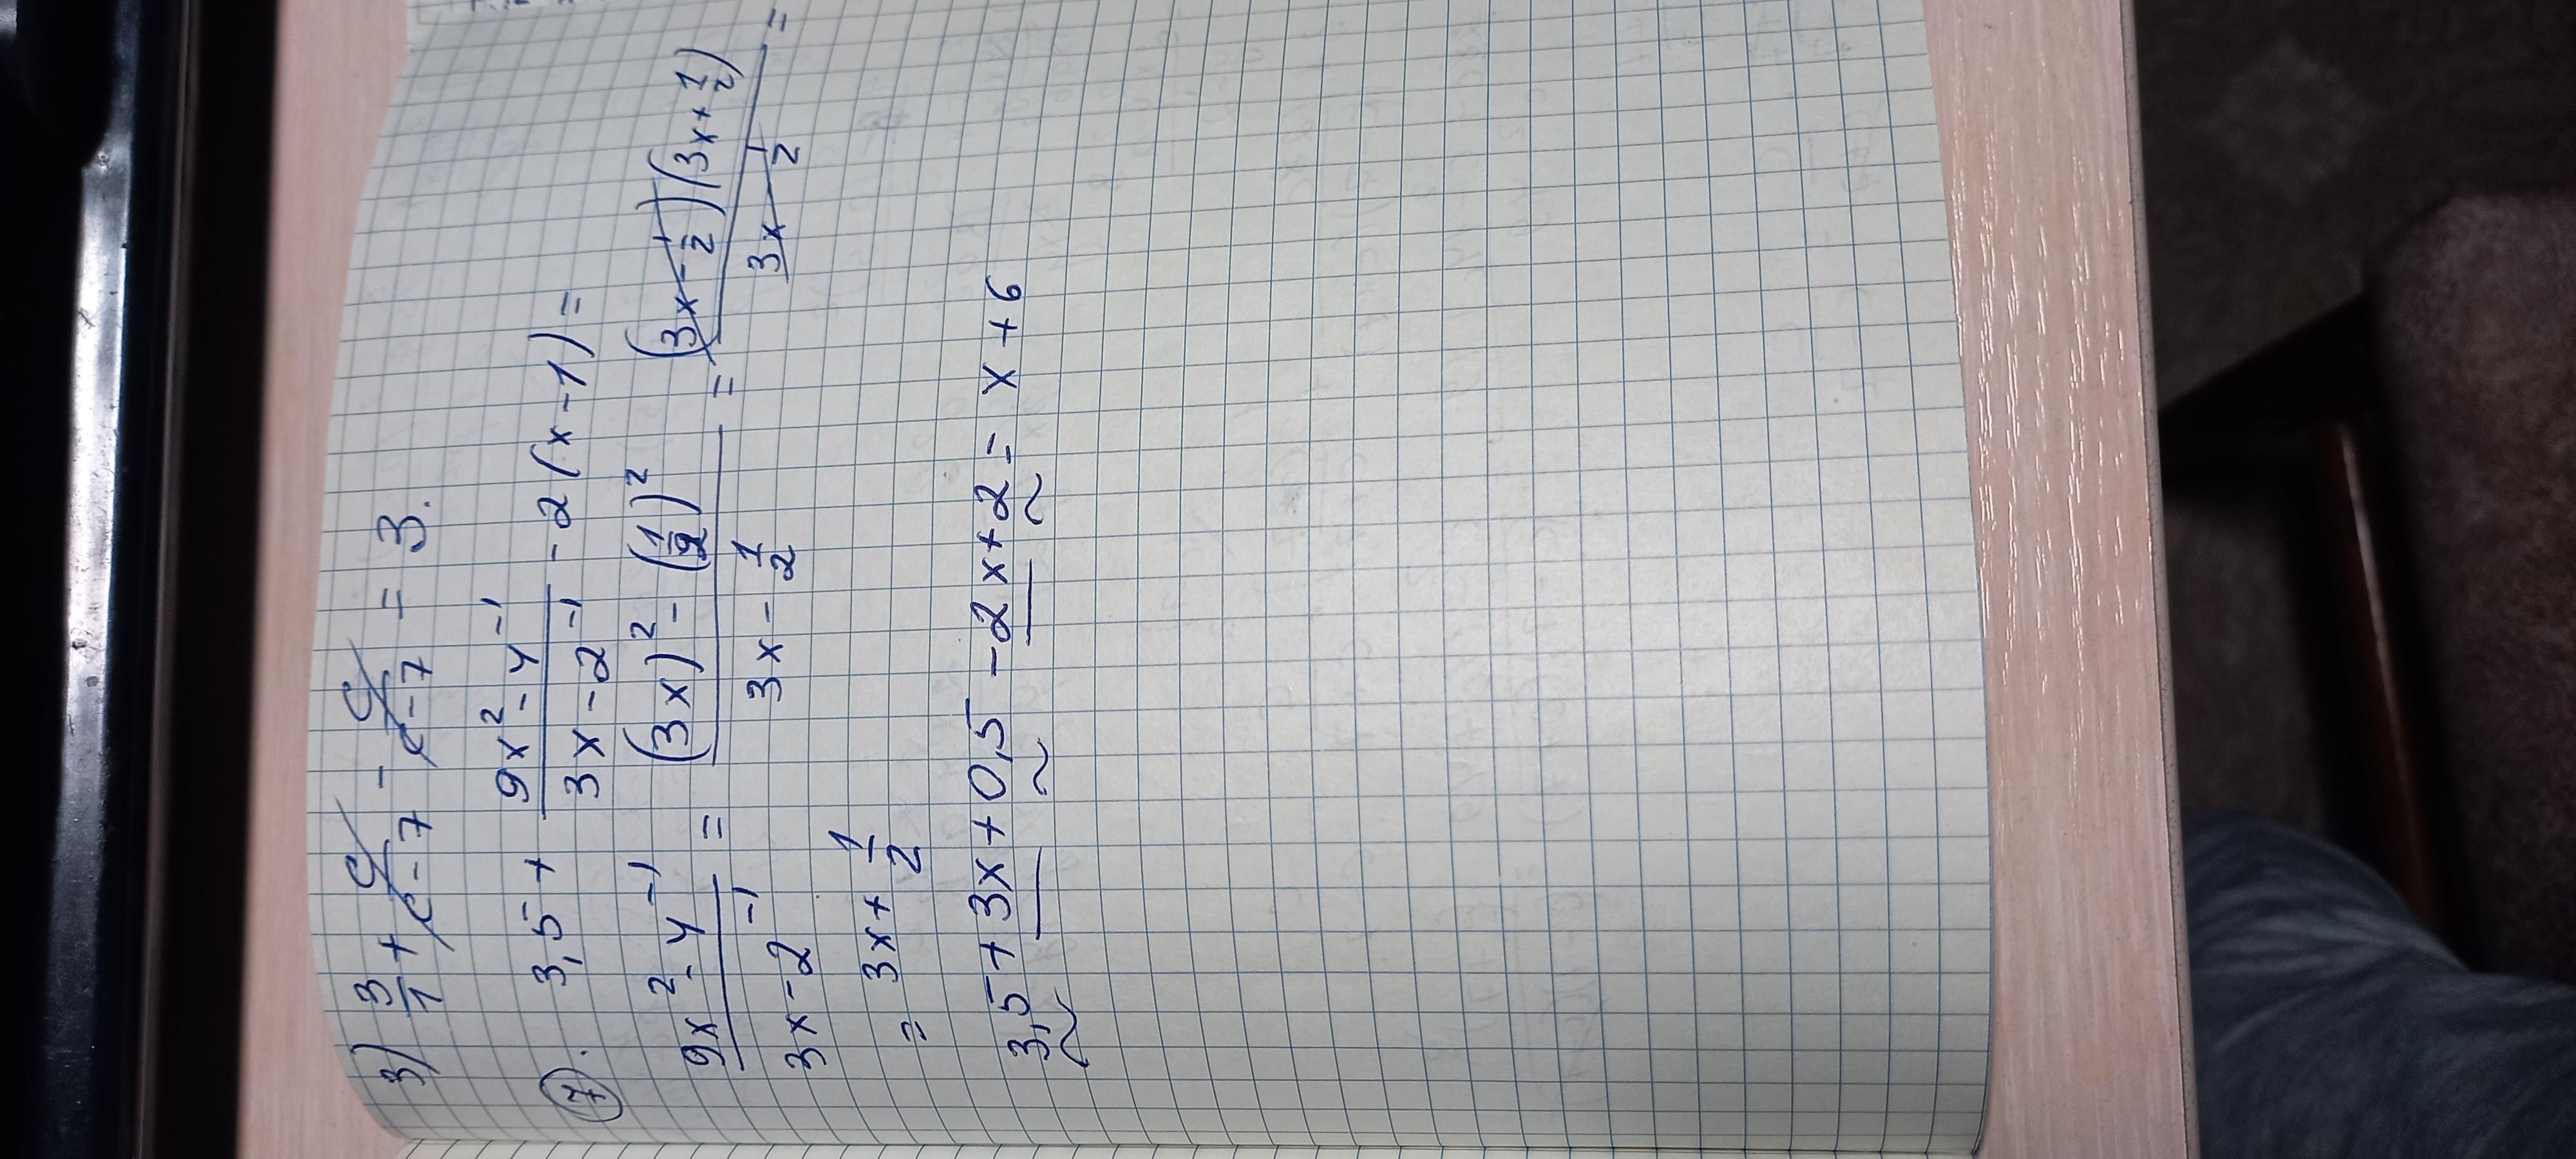 3) 3/1 + c/(c-7) - c/(c-7) = 3.
(7). 3,5 + (9x² - 4⁻¹)/(3x - 2⁻¹) - 2(x-1) =
(9x² - 4⁻¹)/(3x - 2⁻¹) = ((3x)² - (1/2)²)/(3x - 1/2) = ((3x - 1/2)(3x + 1/2))/(3x - 1/2) =
= 3x + 1/2
3,5 + 3x + 0,5 - 2x + 2 = x + 6